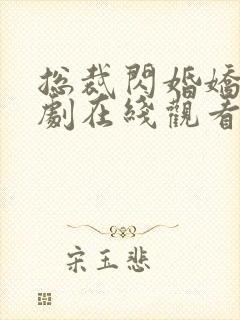 总裁閃婚嬌
劇在綫觀看
宋玉悲